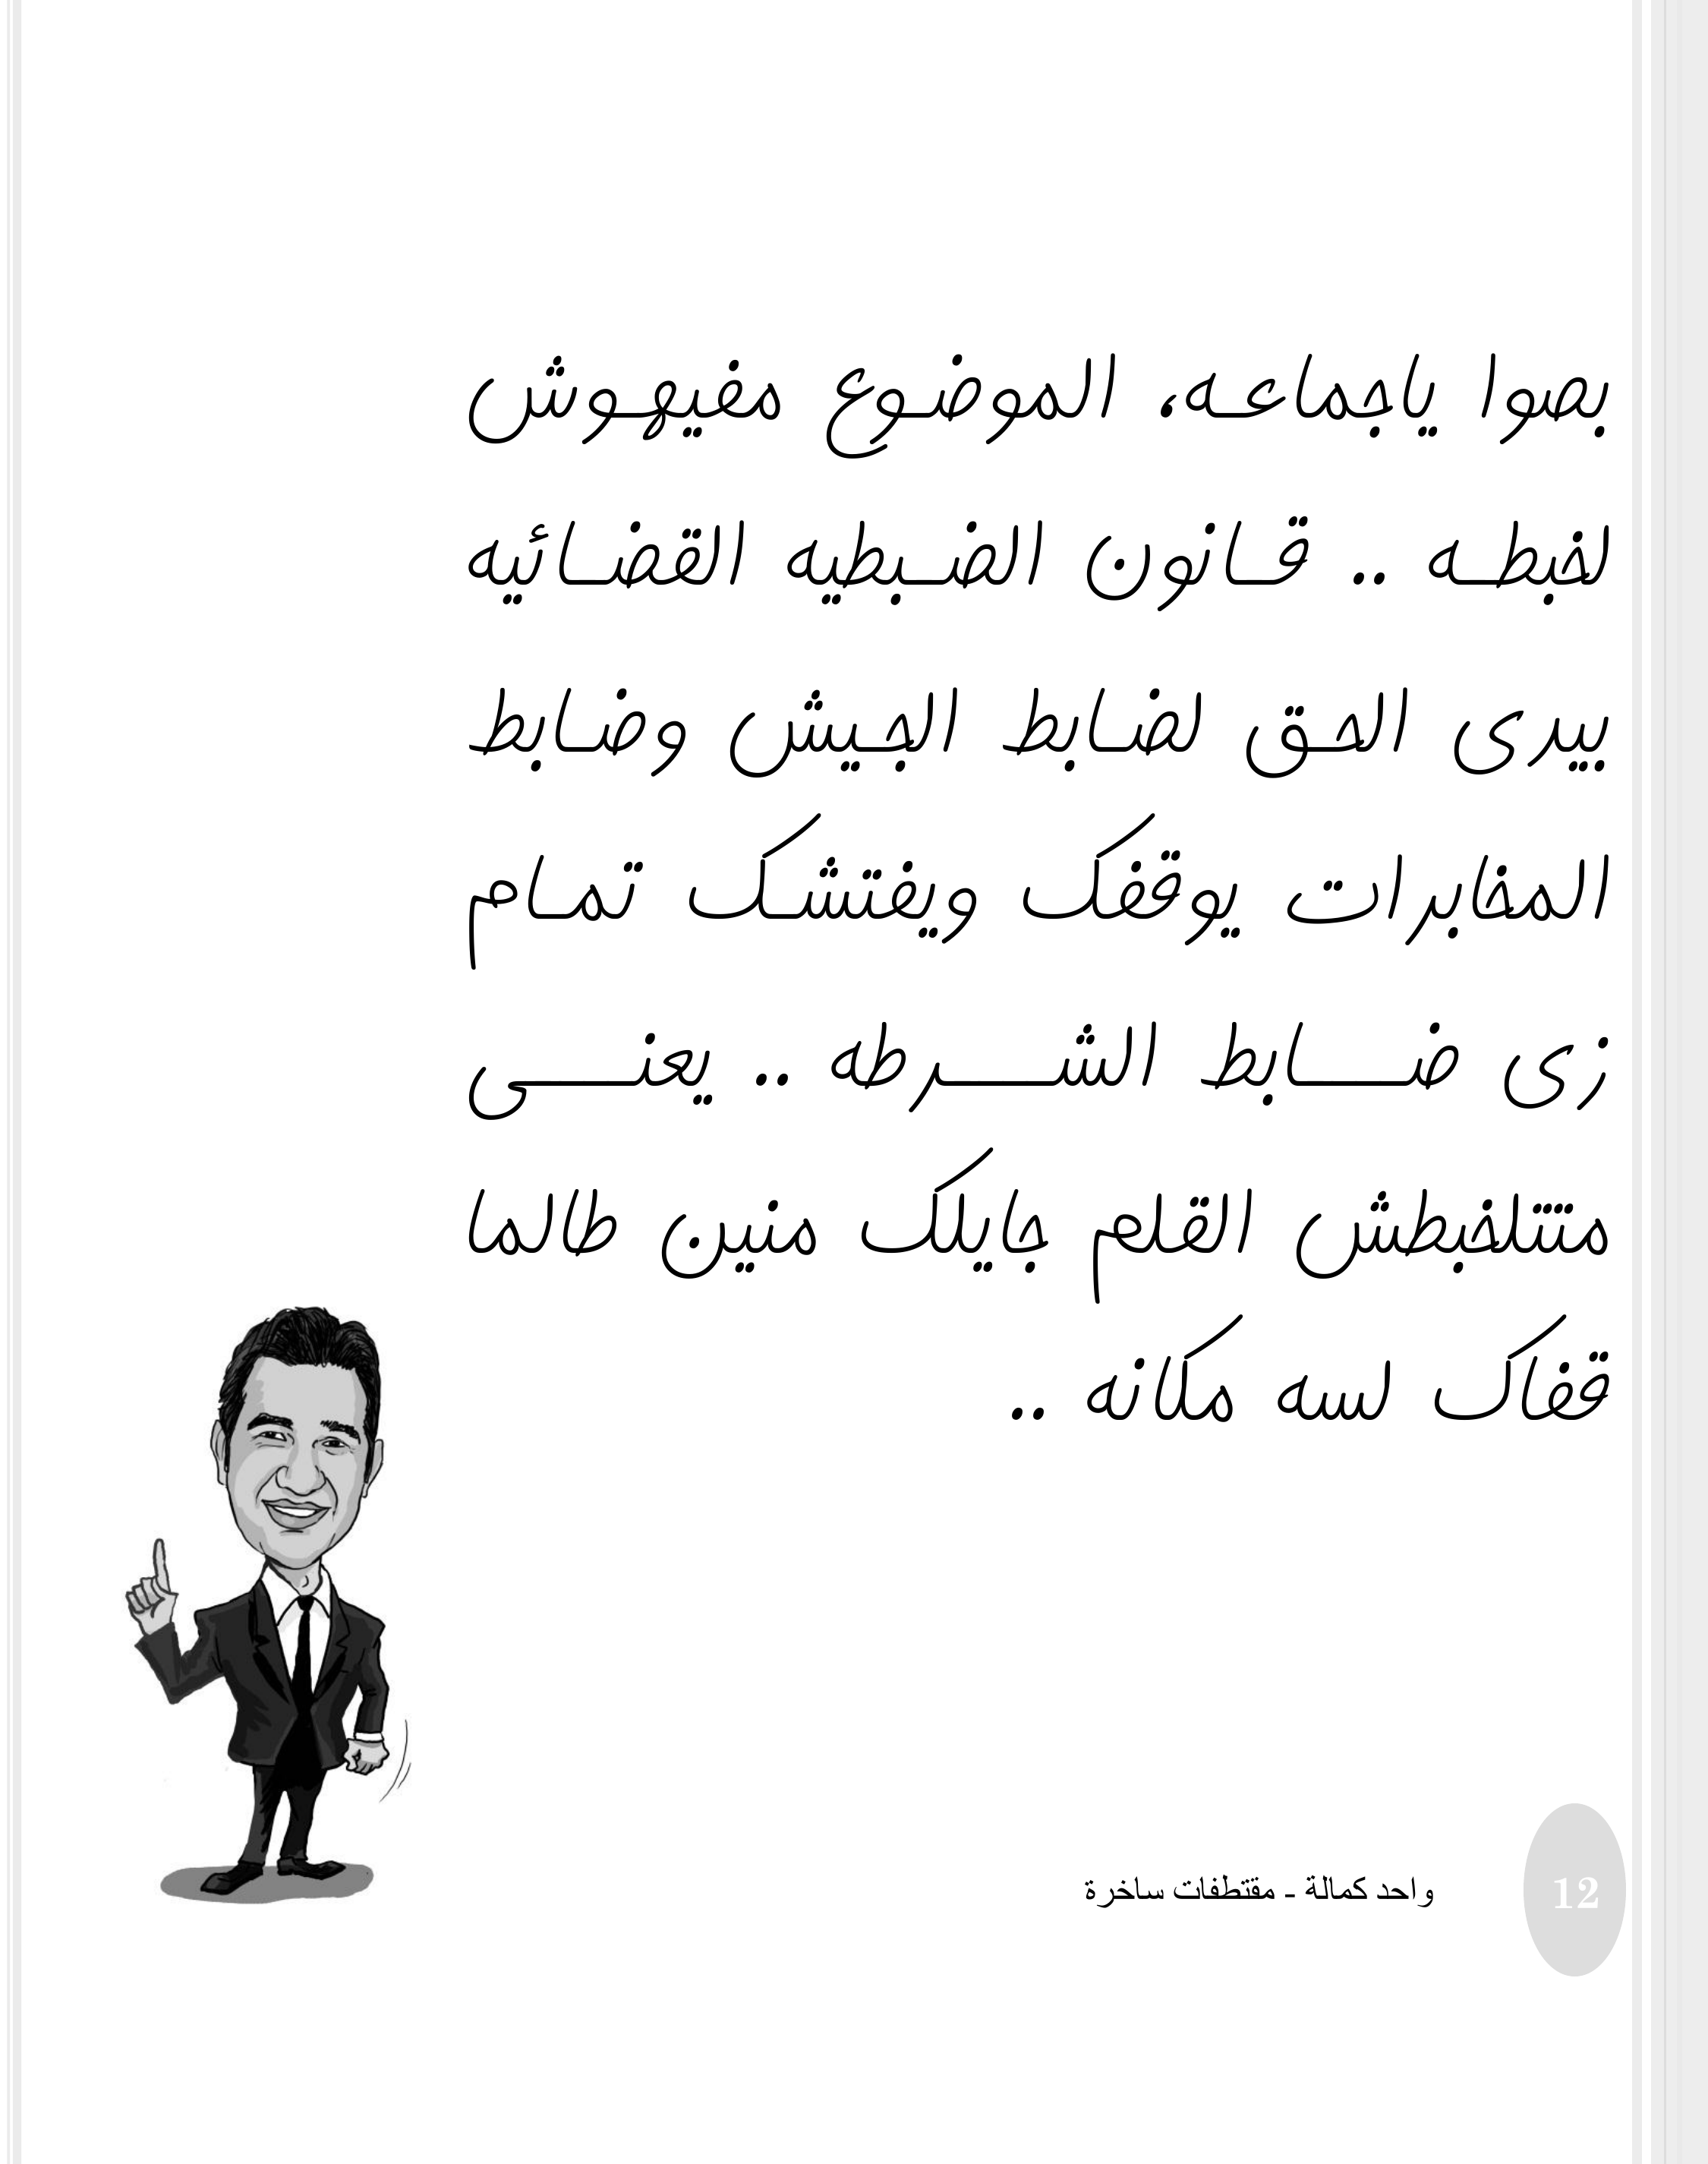 بصوا ياجماعه، الموضوع مفيهوش
لخبطه .. قانون الضبطيه القضائيه
بيدى الحق لضابط الجيش وضابط
المخابرات يوقفك ويفتشك تمام
زى ضابط الشرطه .. يعنى
متتلخبطش القلم جايلك منين طالما
قفاك لسه مكانه ..
واحد كمالة - مقتطفات ساخرة
12